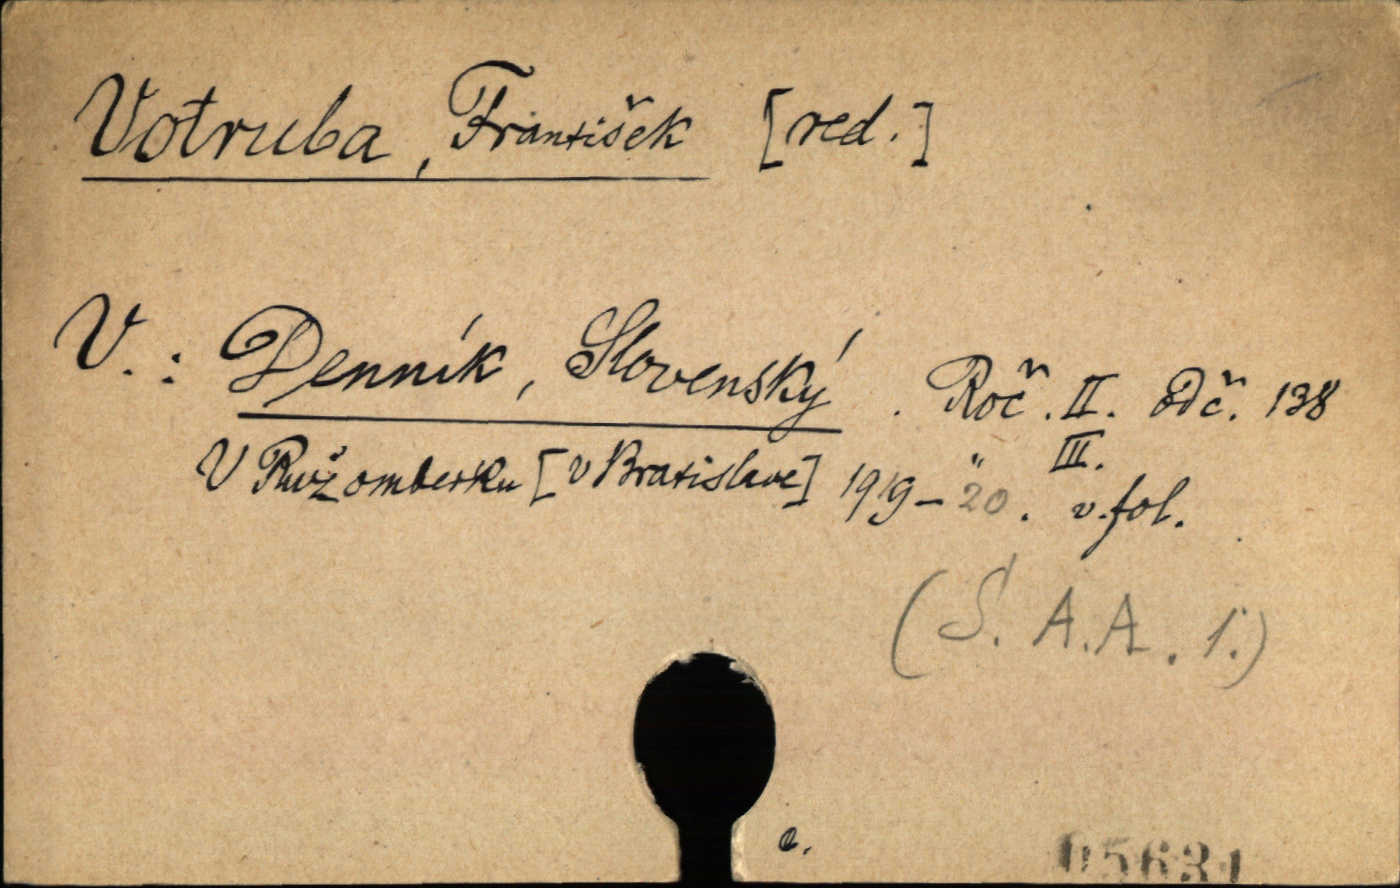 Votruba, František [red.]
V.: Denník, Slovenský. Roč. II. od č. 138
III.
V Ružomberku [v Bratislave] 1919–20. v. fol.
(S. A. A. 1.)
a.
05631